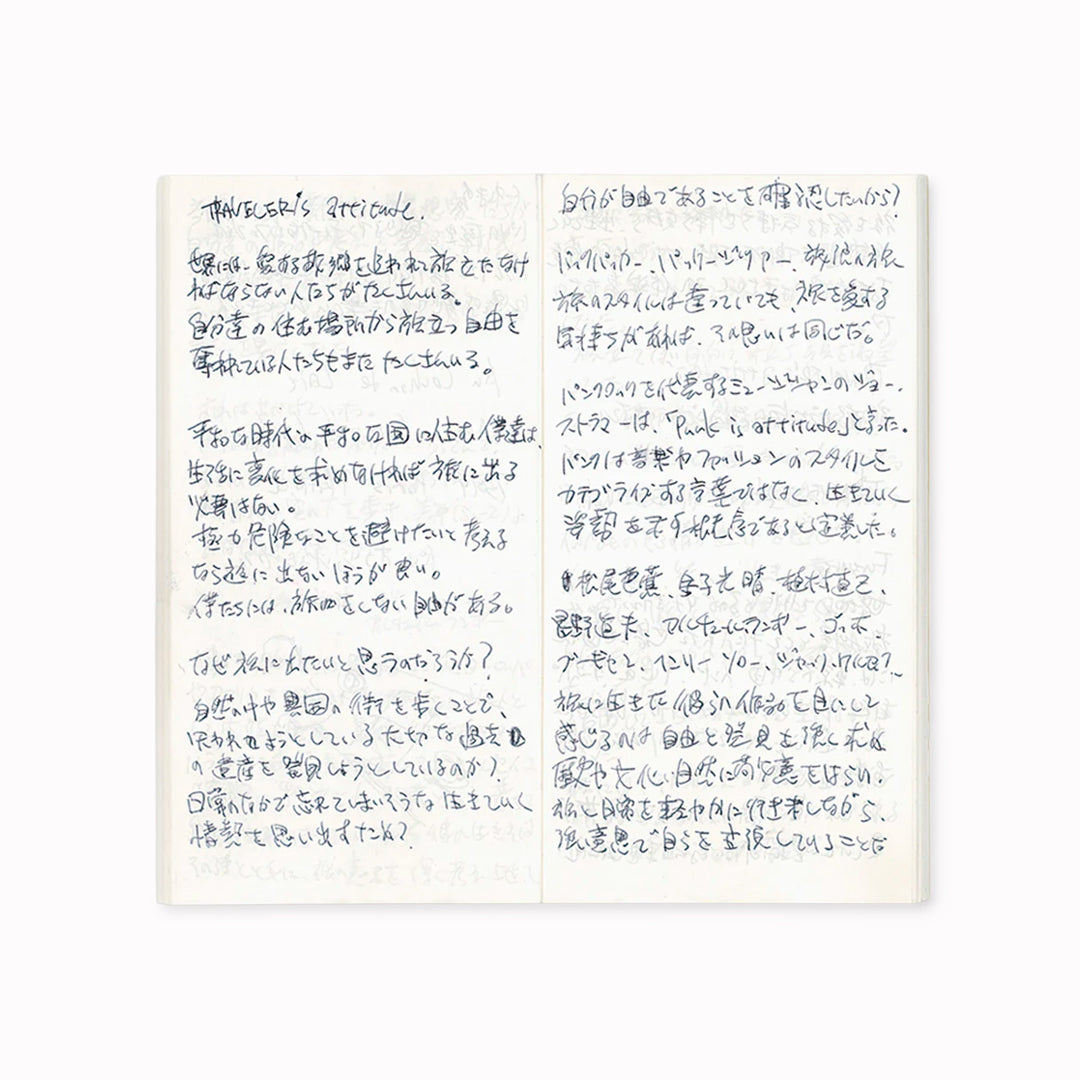 TRAVELER's attitude.
世界には、愛する故郷を追われて旅立たなけ
ればならない人たちがたくさんいる。
自分達の住む場所から旅立つ自由を
奪われている人たちもまたたくさんいる。
平和な時代の平和な国に住む僕達は、
生活に変化を求めなければ旅に出る
必要はない。
極力危険なことを避けたいと考える
なら旅に出ないほうが良い。
僕たちには、旅をしない自由がある。
なぜ旅に出たいと思うのだろうか?
自然の中や異国の街を歩くことで、
失われようとしている大切な過去
の遺産を発見しようとしているのか?
日常のなかで忘れてしまいそうな生きていく
情熱を思い出すため?
自分が自由であることを確認したいから?
バックパッカー、パッケージツアー、旅、旅
旅のスタイルは違っていても、旅を愛する
気持ちがあれば、その思いは同じだ。
パンクロックを代表するミュージシャンのジョー・
ストラマーは、「Punk is attitude」と言った。
パンクは音楽やファッションのスタイルを
カテゴライズする言葉ではなく、生きていく
姿勢を示す概念であると定義した。
松尾芭蕉、金子光晴、植村直己、
星野道夫、アルチュール・ランボー、ゴッホ、
ブルース・ヘンリー・ソロー、ジャック・
旅に生きた彼らの作品を目にして
感じるのは自由と発見を強く求め
歴史や文化、自然に敬意をはらい、
旅と日常を軽やかに行き来しながら、
強い意思で自らを表現していることだ